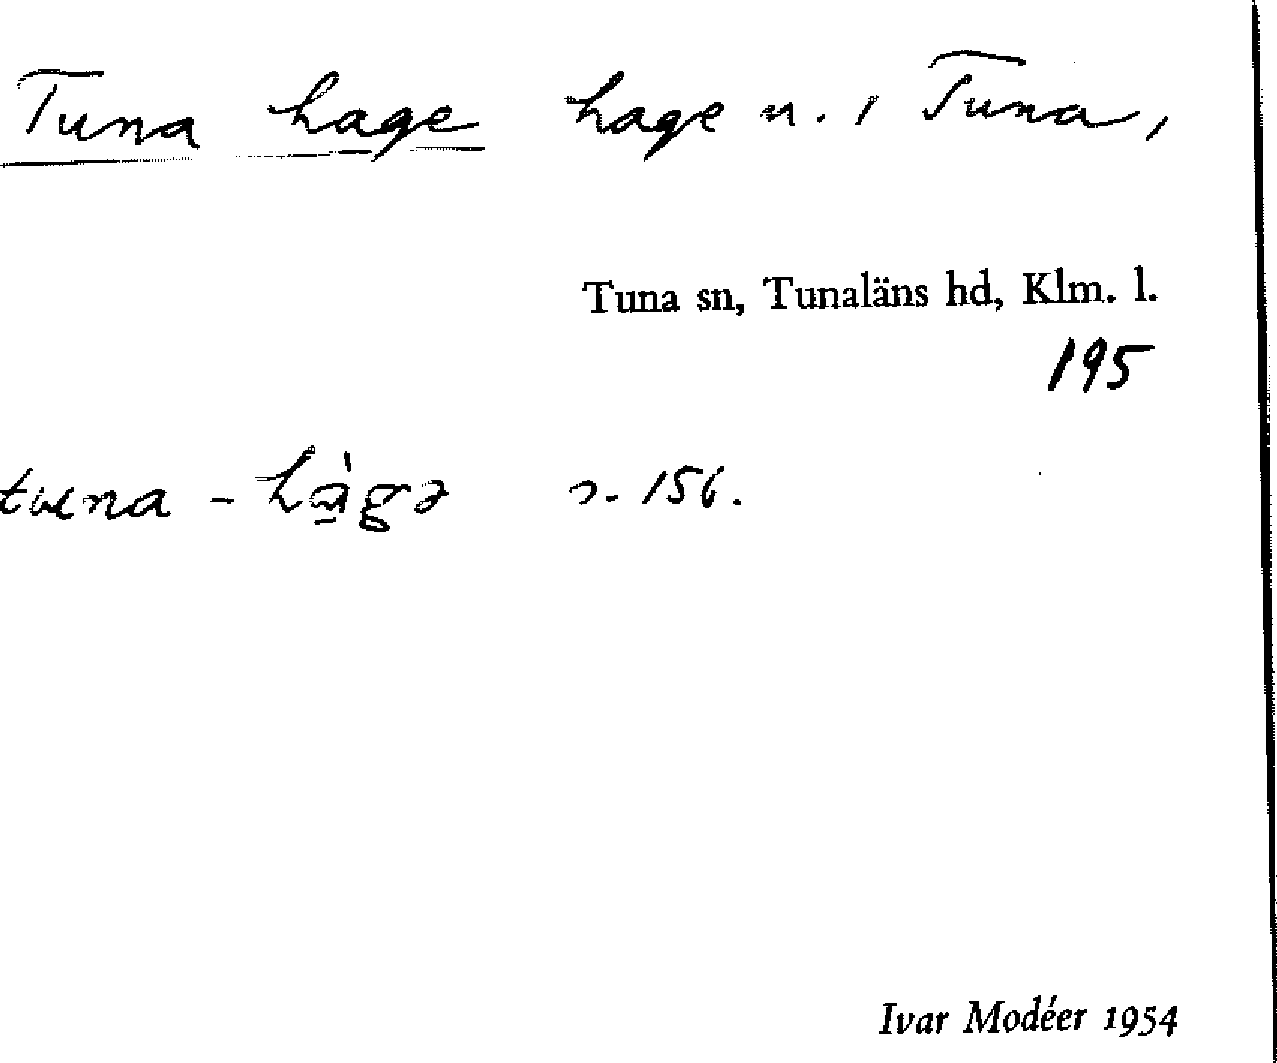 Tuna hage hage n. 1 Tuna,
Tuna sn, Tunaläns hd, Klm. l.
195
tuna - hàgə s. 156.
Ivar Modéer 1954